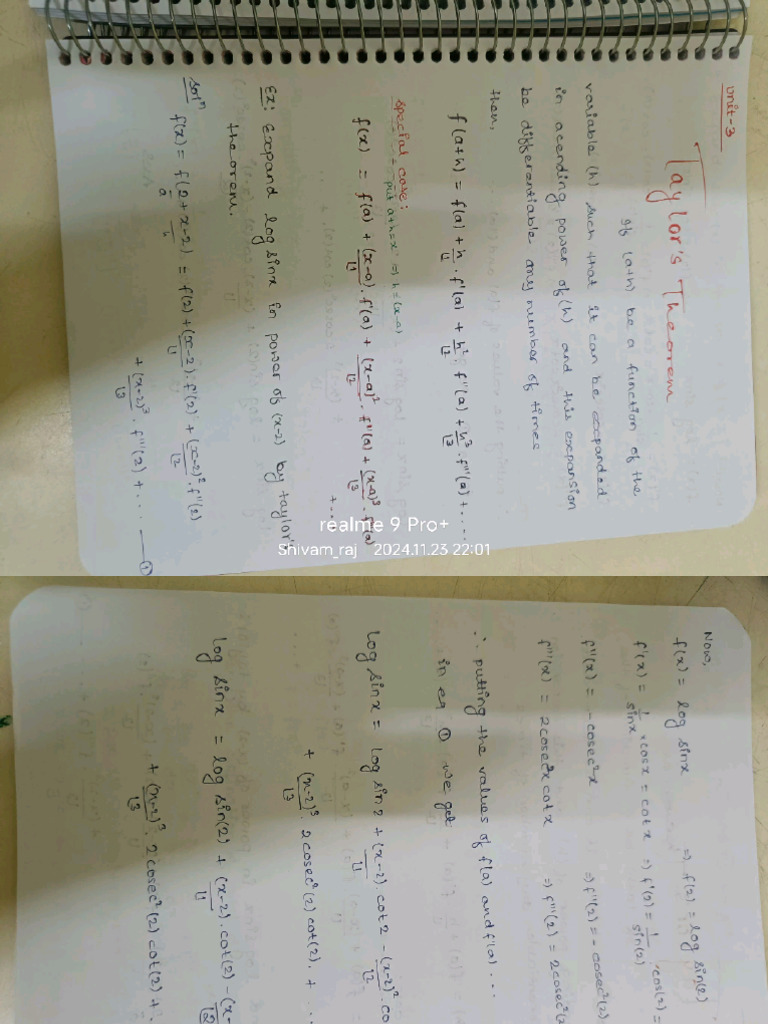 Unit-3
Taylor's Theorem
If (a+h) be a function of the
variable (h) such that it can be expanded
in acending power of (h) and this expansion
be differentiable any number of times
then,
f(a+h) = f(a) + h/⌊1 . f'(a) + h²/⌊2 . f''(a) + h³/⌊3 . f'''(a) + ....
special case:
put a+h=x so h=(x-a)
f(x) = f(a) + (x-a)/⌊1 . f'(a) + (x-a)²/⌊2 . f''(a) + (x-a)³/⌊3 . f'''(a)
+ ...
Ex: Expand log sinx in power of (x-2) by taylor's
theorem.
solⁿ f(x) = f(2+x-2) = f(2) + (x-2)/⌊1 . f'(2) + (x-2)²/⌊2 . f''(2)
a h
+ (x-2)³/⌊3 . f'''(2) + ... — ①
realme 9 Pro+
Shivam_raj 2024.11.23 22:01
Now,
f(x) = log sinx ⇒ f(2) = log sin(2)
f'(x) = 1/sinx × cosx = cotx ⇒ f'(2) = 1/sin(2) . cos(2) =
f''(x) = -cosec²x ⇒ f''(2) = - cosec²(2)
f'''(x) = 2cosec²x cotx ⇒ f'''(2) = 2cosec²(2)
∴ putting the values of f(a) and f'(a) ...
in eq ① we get
log sinx = log sin2 + (x-2)/⌊1 . cot2 - (x-2)²/⌊2 . co
+ (x-2)³/⌊3 . 2cosec²(2) cot(2). + ...
log sinx = log sin(2) + (x-2)/⌊1 . cot(2) - (x-
⌊2
+ (x-2)³/⌊3 . 2cosec²(2) cot(2) + .